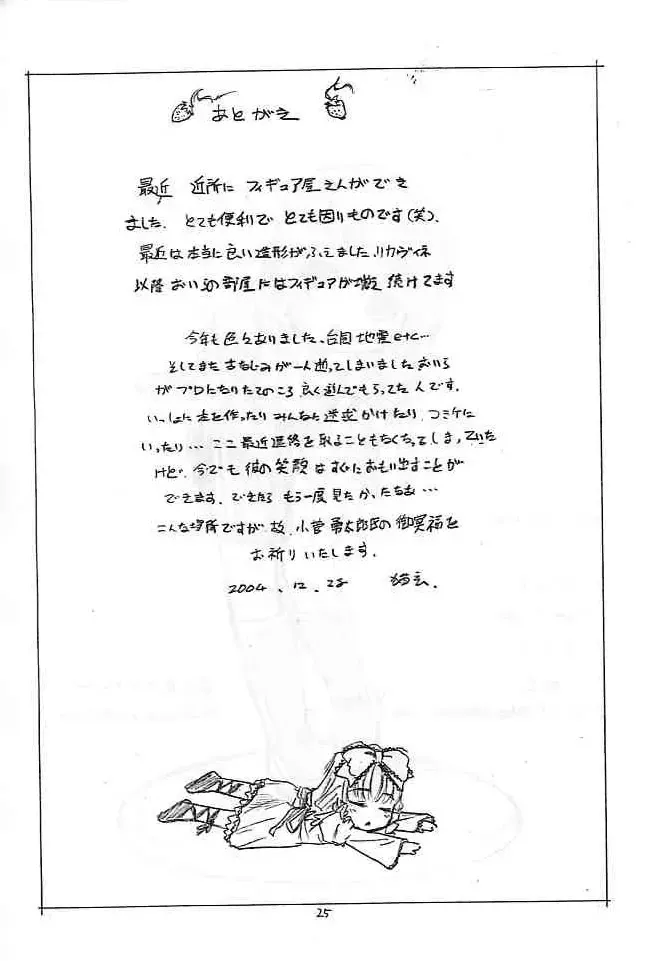 あとがき
最近 近所に フィギュア屋さんができ
ました。とても便利で とても困りものです(笑)。
最近は本当に良い造形がふえました。リカヴィネ
以降 おいらの部屋にはフィギュアが増え続けてます
今年も色々ありました、台風 地震 etc…
そしてまた おさなじみが一人逝ってしまいました おいら
がプロになりたてのころ 良く遊んでもらってた人です。
いっしょに本を作ったり みんなに迷惑かけたり、コミケに
いったり… ここ最近連絡を取ることもなくなってしまっていた
けど、今でも彼の笑顔はすぐにおもい出すことが
できます。できたら もう一度見たかったなあ…
こんな場所ですが 故、小菅勇太郎氏の御冥福を
お祈りいたします。
2004、12、28 猫玄。
25